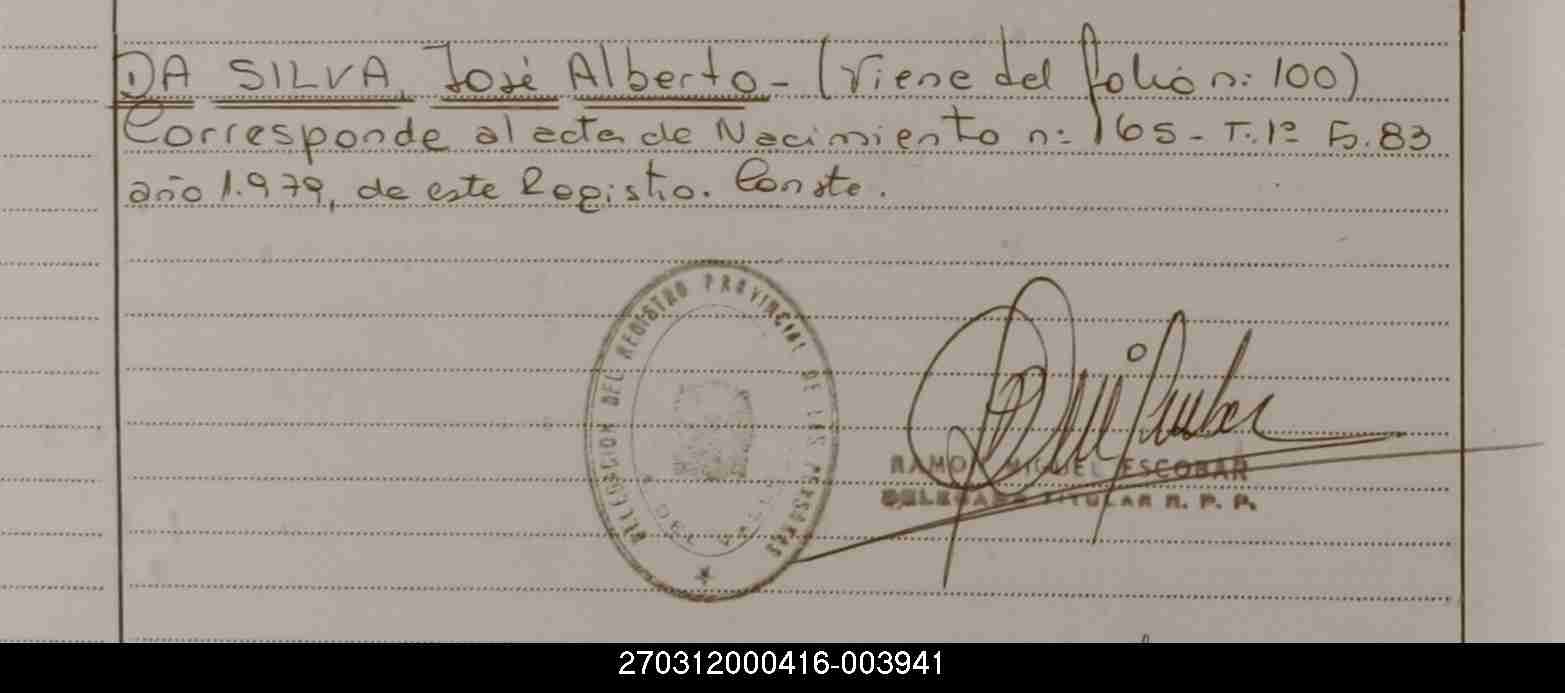 DA SILVA, José Alberto - (Viene del folio n: 100)
Corresponde al acta de Nacimiento n: 165 - T. 1º F. 83
año 1.979, de este Registro. Conste.
DELEGACION DEL REGISTRO PROVINCIAL DE LAS PERSONAS
DEL
RAMON MIGUEL ESCOBAR
DELEGADO TITULAR R. P. P.
270312000416-003941